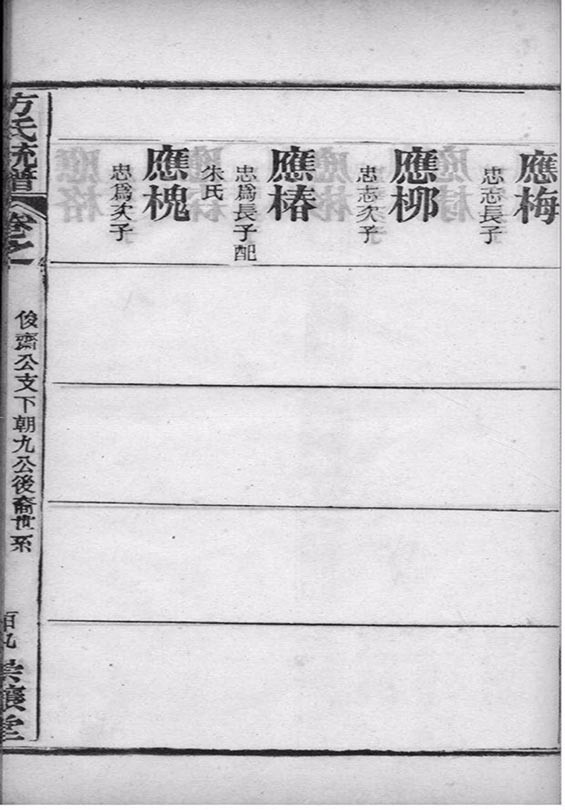 應梅
忠志長子
應柳
忠志次子
應椿
忠爲長子配
朱氏
應槐
忠爲次子
方氏統譜
卷之
俊齋公支下朝九公後裔世系
百九